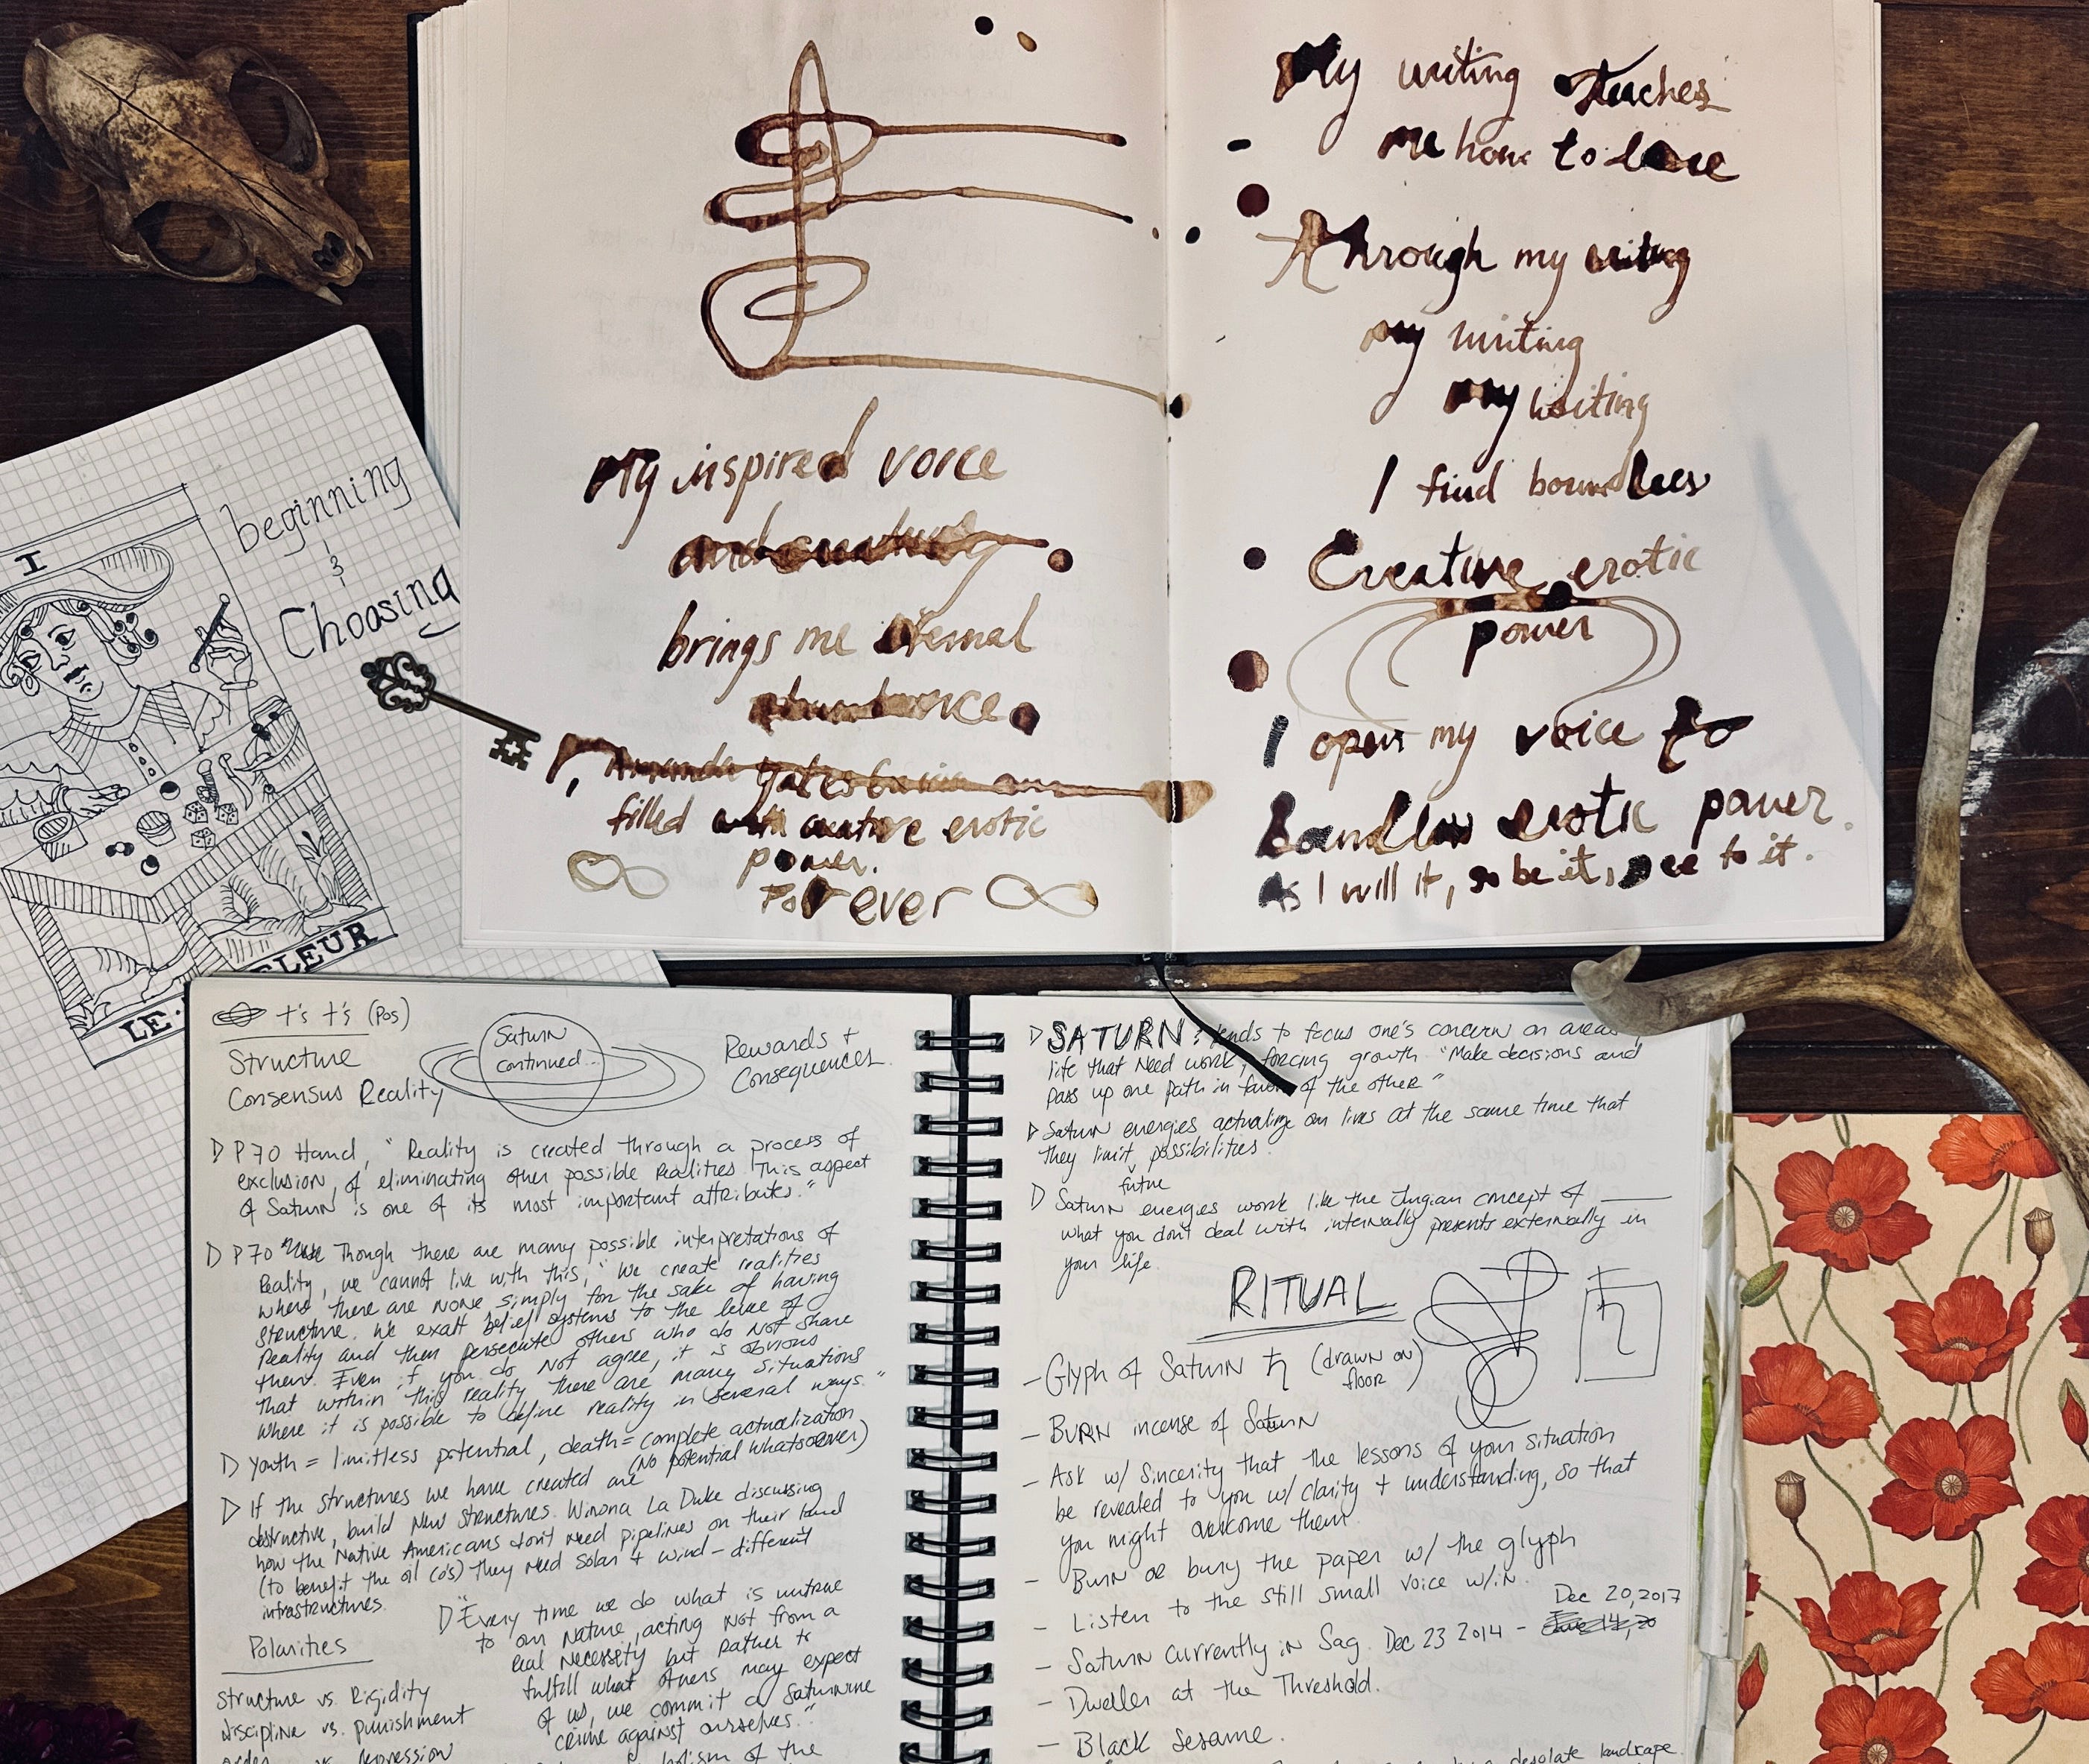 My writing teaches
me how to love
Through my writing
my writing
my writing
I find boundless
Creative erotic
power
I open my voice to
boundless erotic power.
As I will it, so be it, see to it.
My inspired voice
and creativity
brings me eternal
abundance
I, Amanda Yates Garcia am
filled with creative erotic
power.
Forever
I
beginning
&
Choosing
LE
ELEUR
t's t's (Pos)
Structure
Consensus Reality
Saturn
continued...
Rewards +
Consequences
P70 Hand, "Reality is created through a process of
exclusion, of eliminating other possible realities. This aspect
of Saturn is one of its most important attributes."
P70 Though there are many possible interpretations of
Reality, we cannot live with this, "We create realities
where there are none simply for the sake of having
structure. We exalt belief systems to the level of
Reality and then persecute others who do not share
them. Even if you do not agree, it is obvious
that within this reality there are many situations
where it is possible to define reality in several ways."
Youth = limitless potential, death = complete actualization
(No potential whatsoever)
If the structures we have created are
obstructive, build new structures. Winona La Duke discussing
how the Native Americans don't need pipelines on their land
(to benefit the oil co's) they need solar + wind - different
infrastructures.
"Every time we do what is untrue
to our nature, acting not from a
real necessity but rather to
fulfill what others may expect
of us, we commit a Saturnine
crime against ourselves."
of the
Polarities
Structure vs. Rigidity
discipline vs. punishment
order vs. repression
SATURN: tends to focus one's concern on areas
life that need work, forcing growth. "Make decisions and
pass up one path in favor of the other"
Saturn energies actualize our lives at the same time that
they limit possibilities.
future
Saturn energies work like the Jungian concept of
what you don't deal with internally presents externally in
your life.
RITUAL
- Glyph of Saturn ♄ (drawn on
floor)
♄
- Burn incense of Saturn
- Ask w/ sincerity that the lessons of your situation
be revealed to you w/ clarity + understanding, so that
you might overcome them.
- Burn or bury the paper w/ the glyph
- Listen to the still small voice w/in.
Dec 20, 2017
- Saturn currently in Sag. Dec 23 2014 -
- Dweller at the Threshold.
- Black Sesame.
desolate landscape